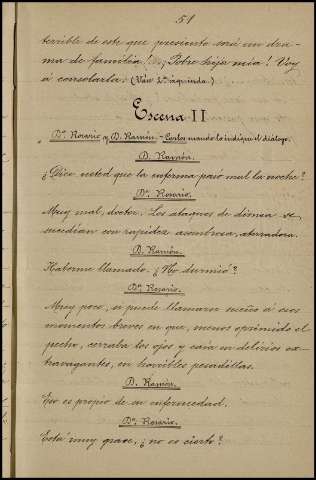 51
terrible de este que presiento será un dra-
ma de familia! ¡Pobre hija mia! Voy
á consolarla. (Váse 2ª izquierda.)
Escena II
Dª. Rosario y D. Ramón - Carlos cuando lo indique el diálogo.
D. Ramón.
¿Dice usted que la enferma pasó mal la noche?
Dª. Rosario.
Muy mal, doctor. Los ataques de disnea se
sucedían con rapidez asombrosa, aterradora.
D. Ramón.
Haberme llamado. ¿No durmió?
Dª. Rosario.
Muy poco, si puede llamarse sueño á esos
momentos breves en que, menos oprimido el
pecho, cerraba los ojos y caía en delirios ex-
travagantes, en horribles pesadillas.
D. Ramón.
Eso es propio de su enfermedad.
Dª. Rosario.
Está muy grave, ¿no es cierto?